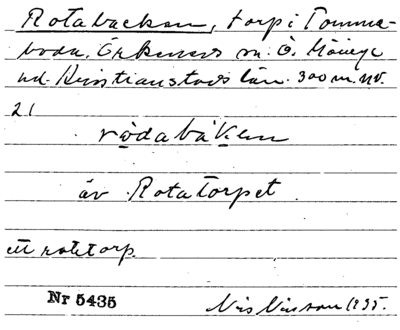 Rotabacken, torp i Tomma-
boda, Örkeneds sn. Ö. Göinge
hd. Kristianstads län. 300 m. nv.
21
rǫdabákenn
äv. Rotatorpet.
ett rotetorp.
Nr 5435
Nils Nilsson 1935.